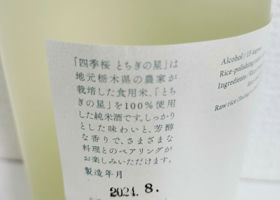 「四季桜 とちぎの星」は
地元栃木県の農家が
栽培した食用米、「とち
ぎの星」を100%使用
した純米酒です。しっかり
とした味わいと、芳醇
な香りで、さまざまな
料理とのペアリングが
お楽しみいただけます。
製造年月
2021. 8.
Alcohol / 15 degrees
Rice-polishing
Ingredients / 
Raw rice /